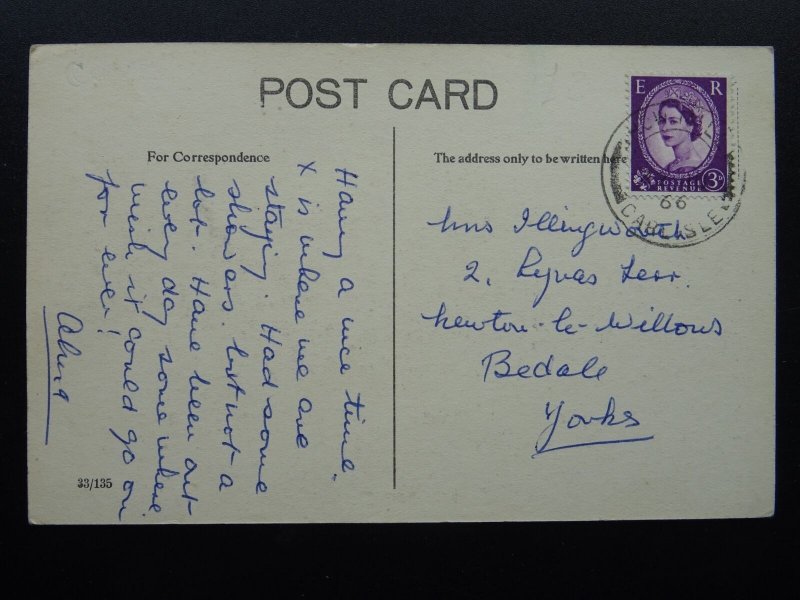 POST CARD
For Correspondence
The address only to be written here
E R
POSTAGE
REVENUE
3D
66
CARLISLE
Having a nice time.
X is where we are
staying. Had some
showers. but not a
lot. Have been out
every day some where
wish it could go on
for ever!
Mrs Illingworth
2, Terr.
Newton-le-Willows
Bedale
Yorks
33/135